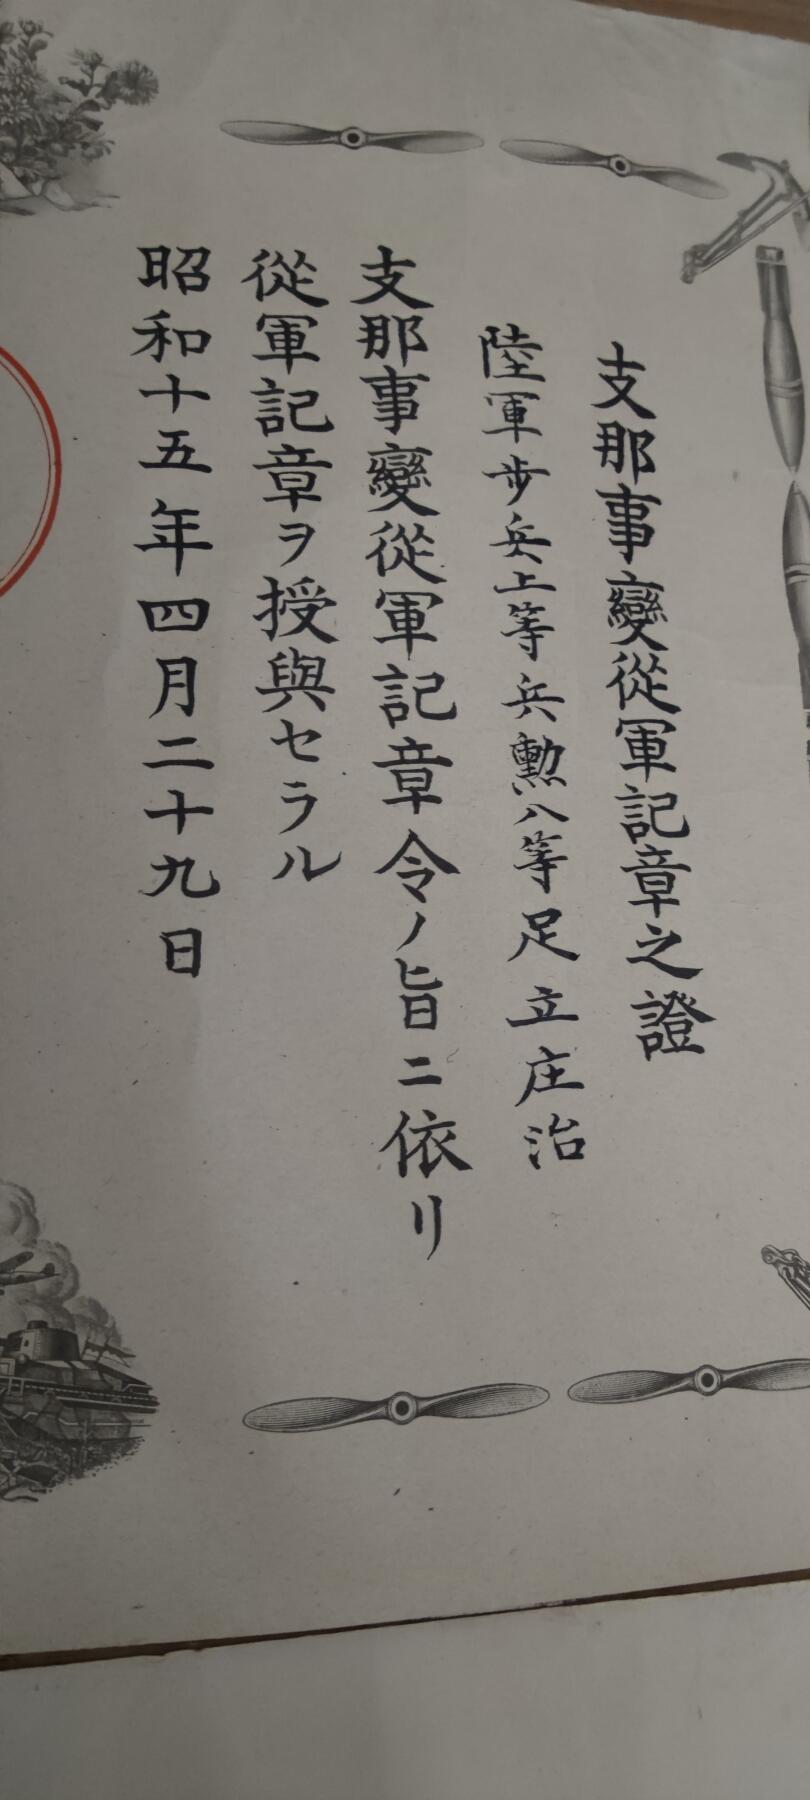 支那事變從軍記章之證
陸軍步兵上等兵勲八等足立庄治
支那事變從軍記章令ノ旨ニ依リ
從軍記章ヲ授與セラル
昭和十五年四月二十九日